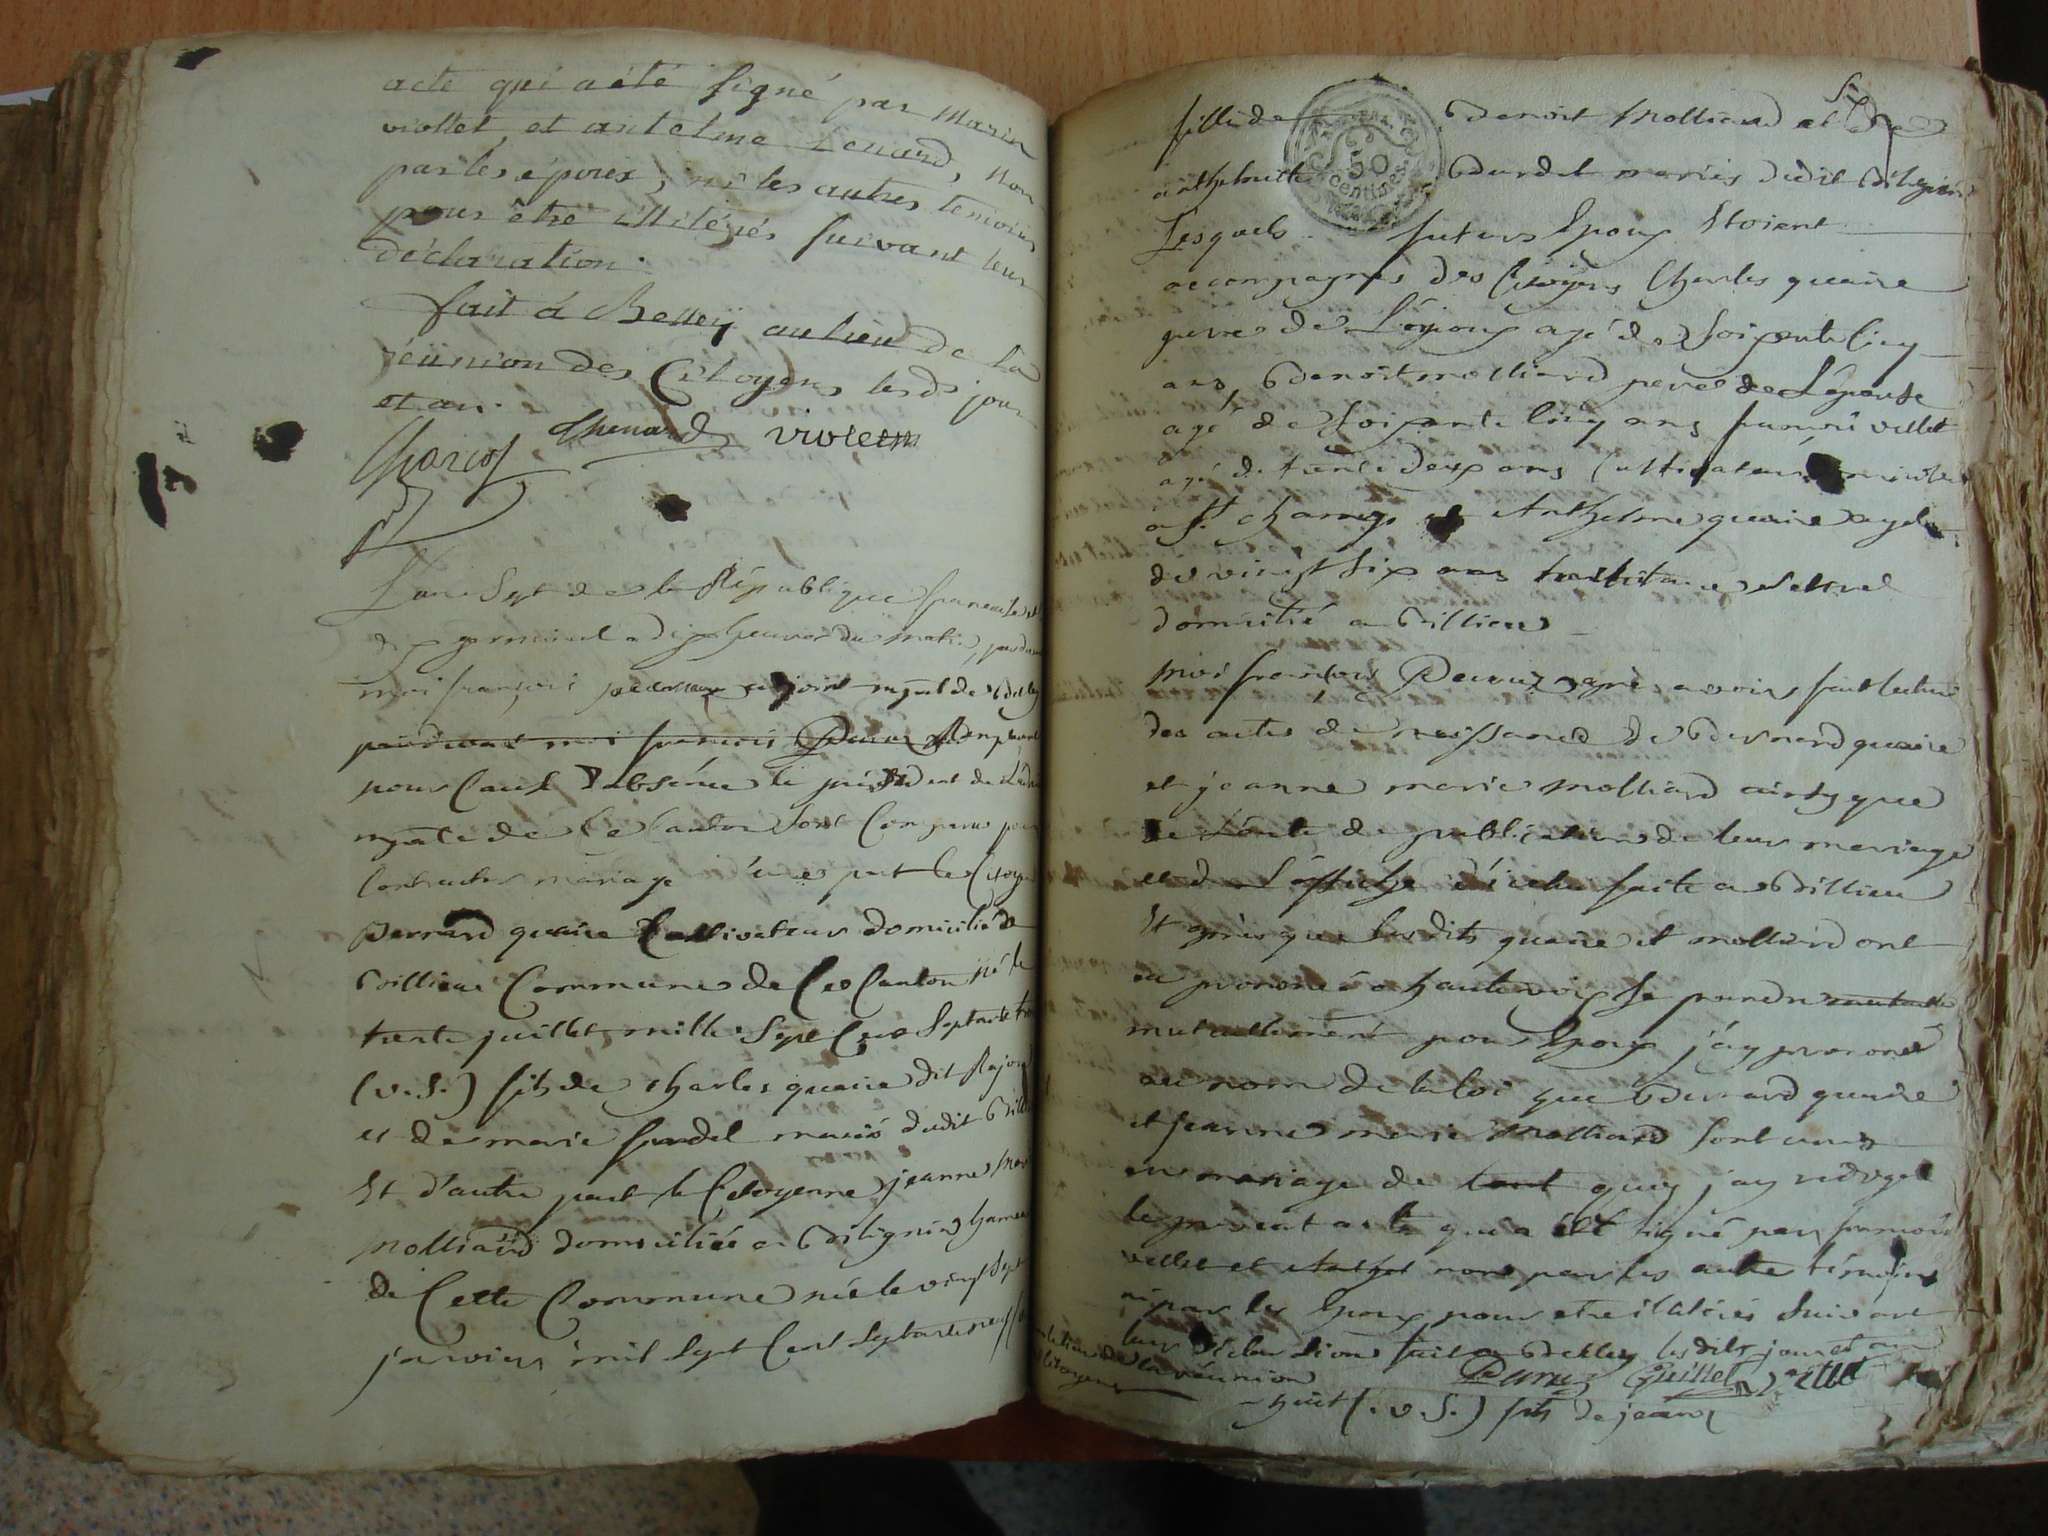 acte qui a été signé par Marin
viollet et antelme thenard, non
par les époux, ni les autres temoins
pour être illiterés suivant leur
déclaration.
fait à Belley au lieu de la
réunion des Citoyens lesds jour
et an.
Thenard violet
L'an Sept de la République francaise le
dix germinal a dix heures du matin, pardevant
moi françois adjoint mpal de Belley
pardevant moi francois
pour Cause d'absence le président de
mpale de Ce Canton sont Comparus pour
Contracter mariage d'une part le Citoyen
Bernard quaire Cultivateur domicilié a
Billieu Commune de Ce Canton né le
trente juillet mille Sept Cent Septante
(v.S.) fils de charles quaire dit
et de marie mariés dudit
Et d'autre part la Citoyenne jeanne
Molliard domiciliée a Billignin hameau
de Cette Commune née le vingt Sept
janvier mil Sept Cent Septante neuf
fille de Benoit Molliard et
50
centimes
anthelmette Bourdel mariés dudit Billignin
Lesquels futurs Epoux Etoient
accompagnés des Citoyens Charles quaire
pere de L'époux agé de Soixante Cinq
ans, Benoit Molliard pere de L'épouse
agé de Soixante Cinq ans francois vellet
agé de trente deux ans Cultivateur
a St champ et Anthelme quaire agé
de vingt Six ans
domicilié a Billieu
Moi francois apres avoir fait lecture
des actes de naissance de Bernard quaire
et jeanne marie Molliard ainsy que
de L'acte de publication de leur mariage
et d L'affiche d'icelui faite a Billieu
Et après que Lesdits quaire et molliard ont
eu prononcé a haute voix se prendre
mutuellement pour Epoux j'ay prononcé
au nom de la loi que Bernard quaire
et Jeanne marie Molliard sont unis
en mariage de tout quoy j'ay redigé
le present acte qui a été signé par francois
vellet et non par les autre témoins
ni par les Epoux pour etre illitérés Suivant
leur déclaration fait a Belley les dits jour et an
au lieu de la réunion
des citoyens
huit (.v.S.) fils de jean